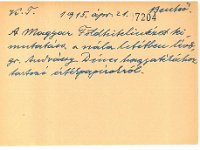 K. T. 1915. ápr. 21. Bentső.
7204
A Magyar Földhitelintézet ki-
mutatása a nála letétben lévő
gr. Andrássy Dénes hagyatékához
tartozó értékpapírokról.